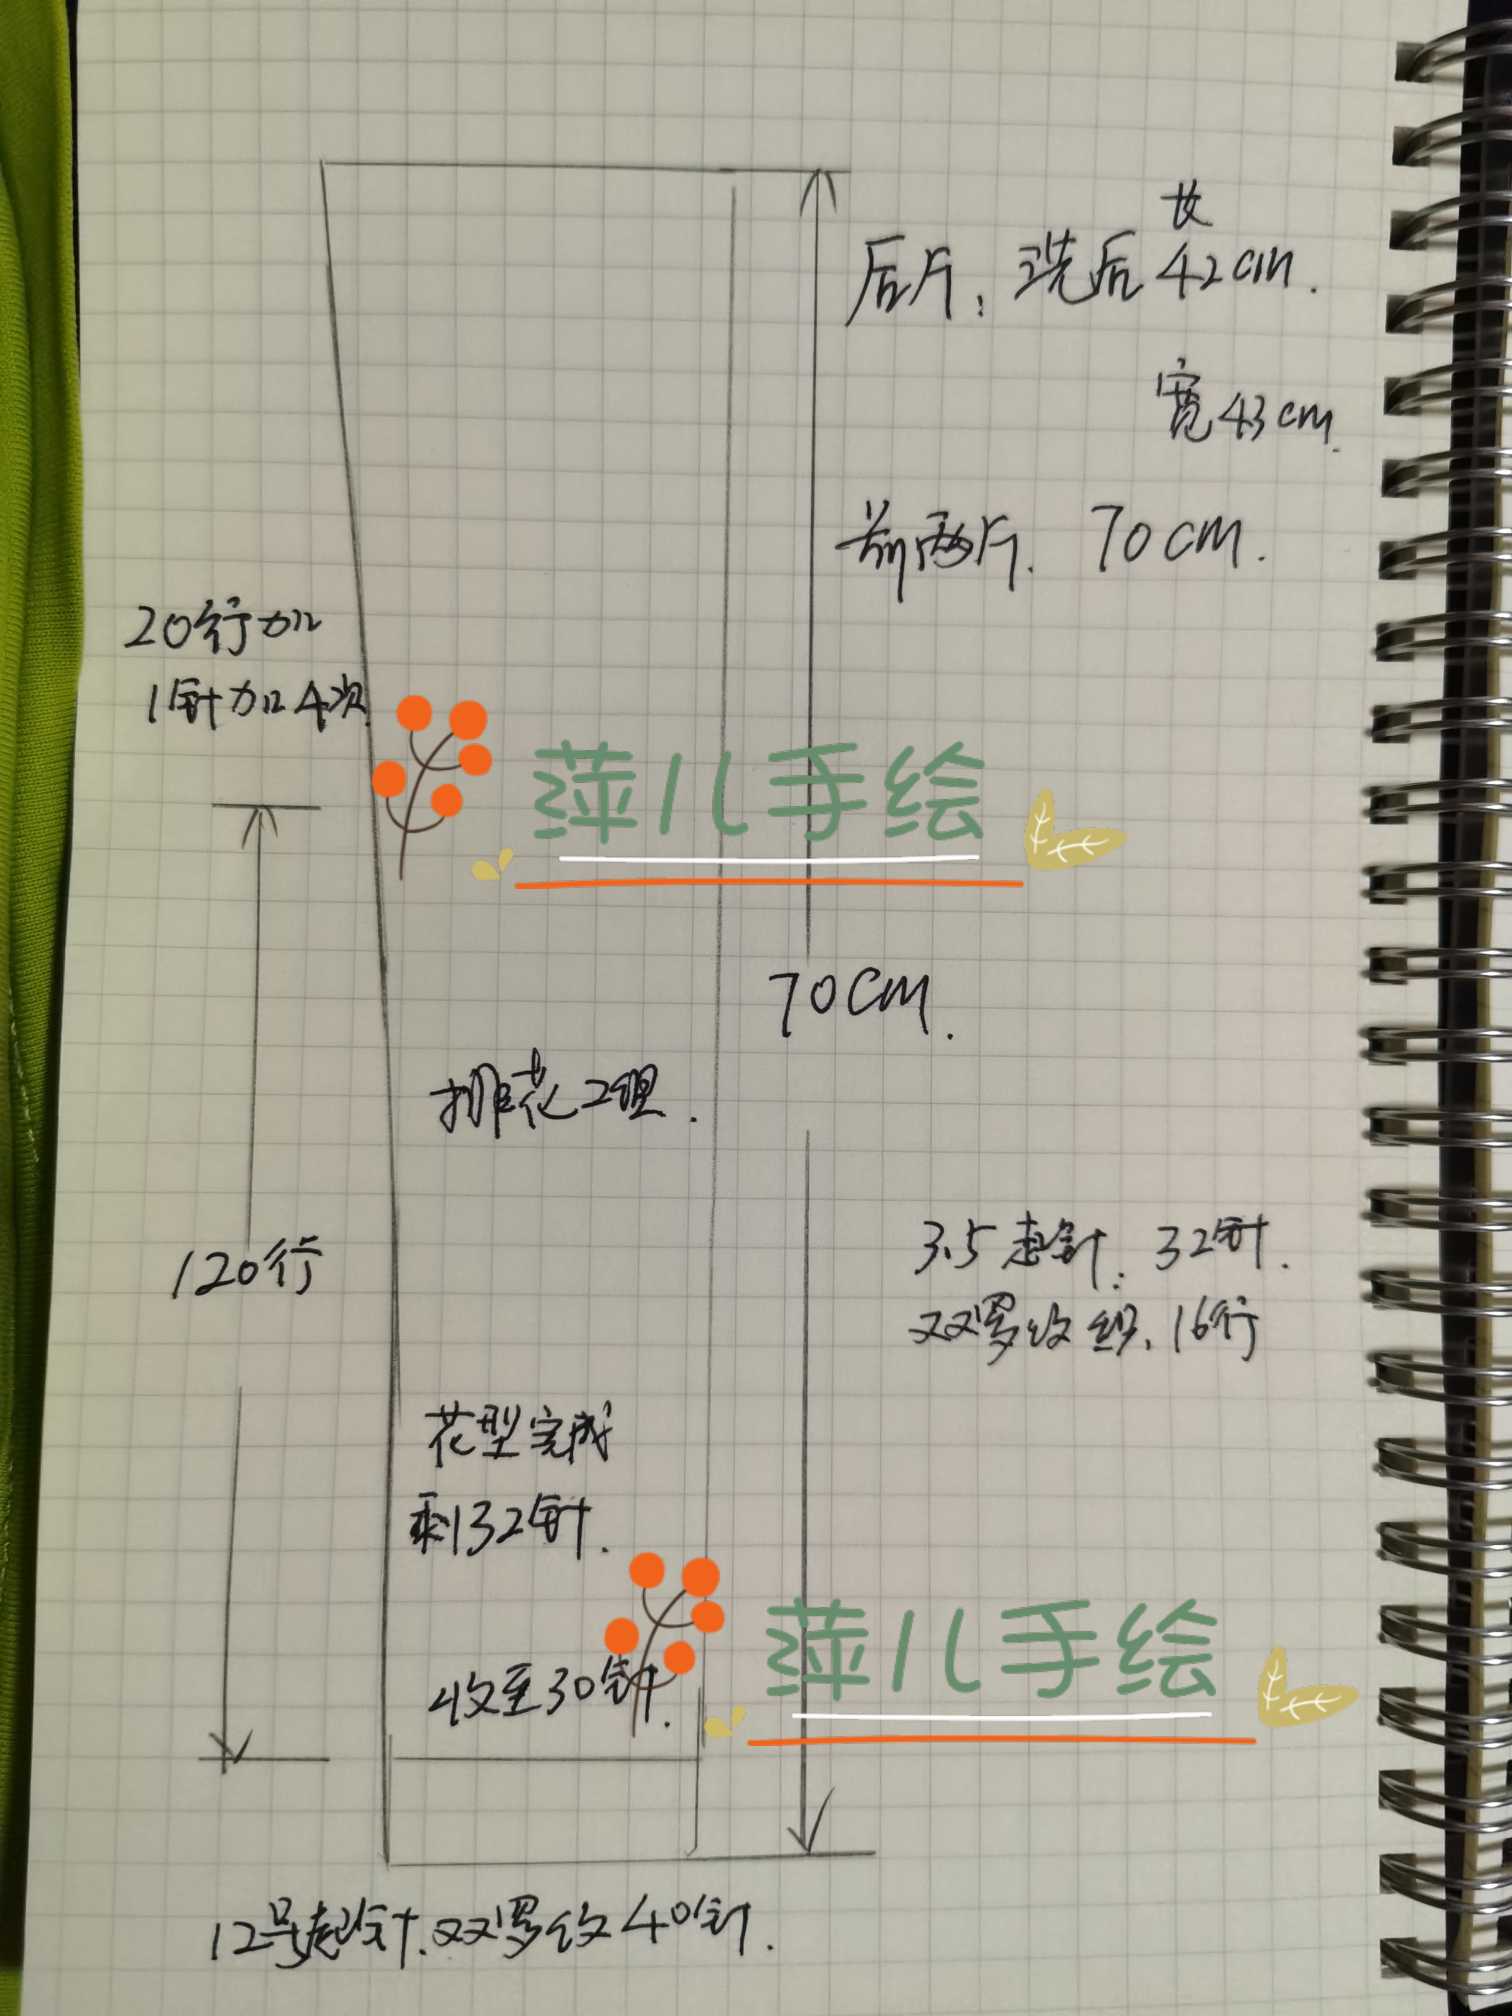 后片：洗后长42cm.
宽43cm.
前两片. 70cm.
20行加
1针加4次
萍儿手绘
70cm.
排花2组.
120行
3.5起针: 32针.
双罗纹织. 16行
花型完成
剩132针.
萍儿手绘
收至30针.
12号起针.双罗纹40针.